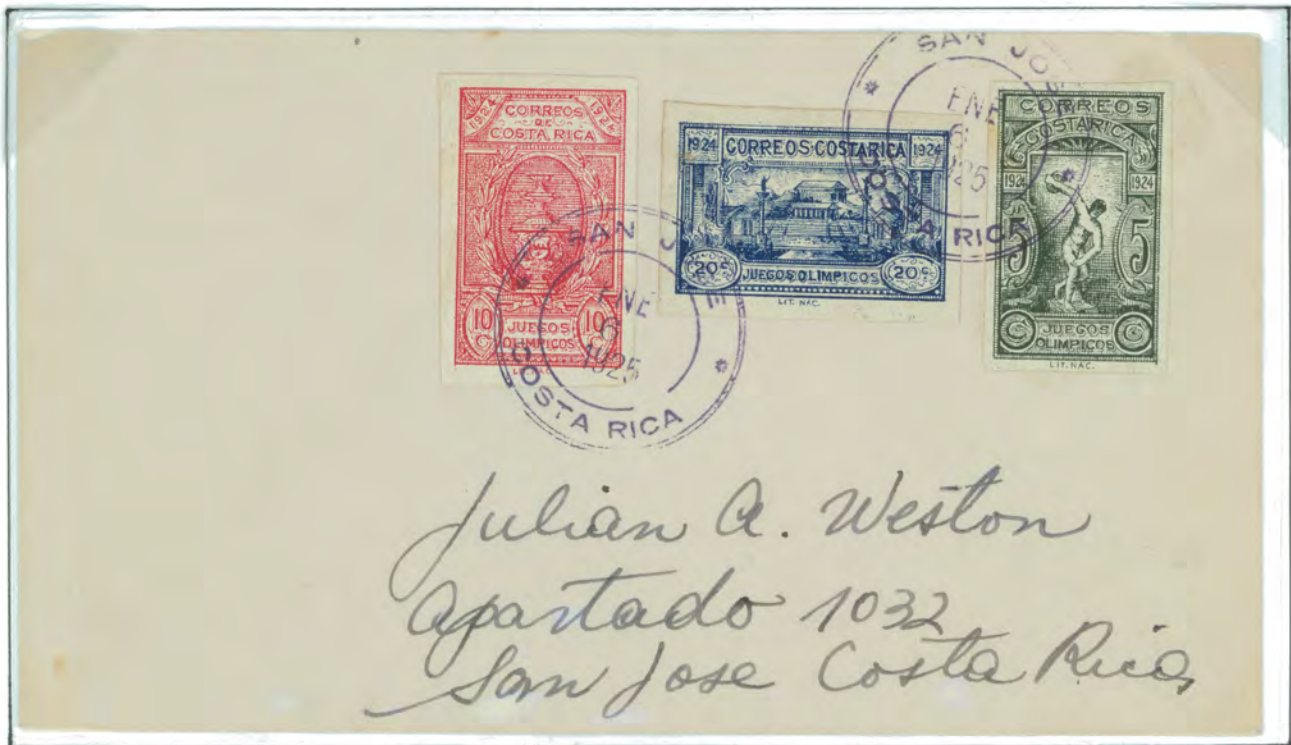 1924 1924
CORREOS
DE
COSTA RICA
10 10
C C
JUEGOS
OLIMPICOS
1924 CORREOS·COSTARICA 1924
20c JUEGOS OLIMPICOS 20c
LIT. NAC.
CORREOS
COSTARICA
1924 1924
5 5
C C
JUEGOS
OLIMPICOS
LIT. NAC.
SAN JOSE
ENE
6
1925
COSTA RICA
SAN JOSE
ENE
6
1925
COSTA RICA
Julian A. Weston
Apartado 1032
San Jose Costa Rica